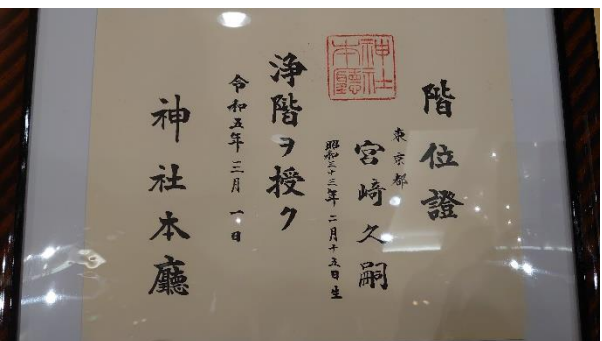 階位證
東京都
宮崎久嗣
昭和三十三年二月十五日生
浄階ヲ授ク
令和五年三月一日
神社本廳
神社本廳